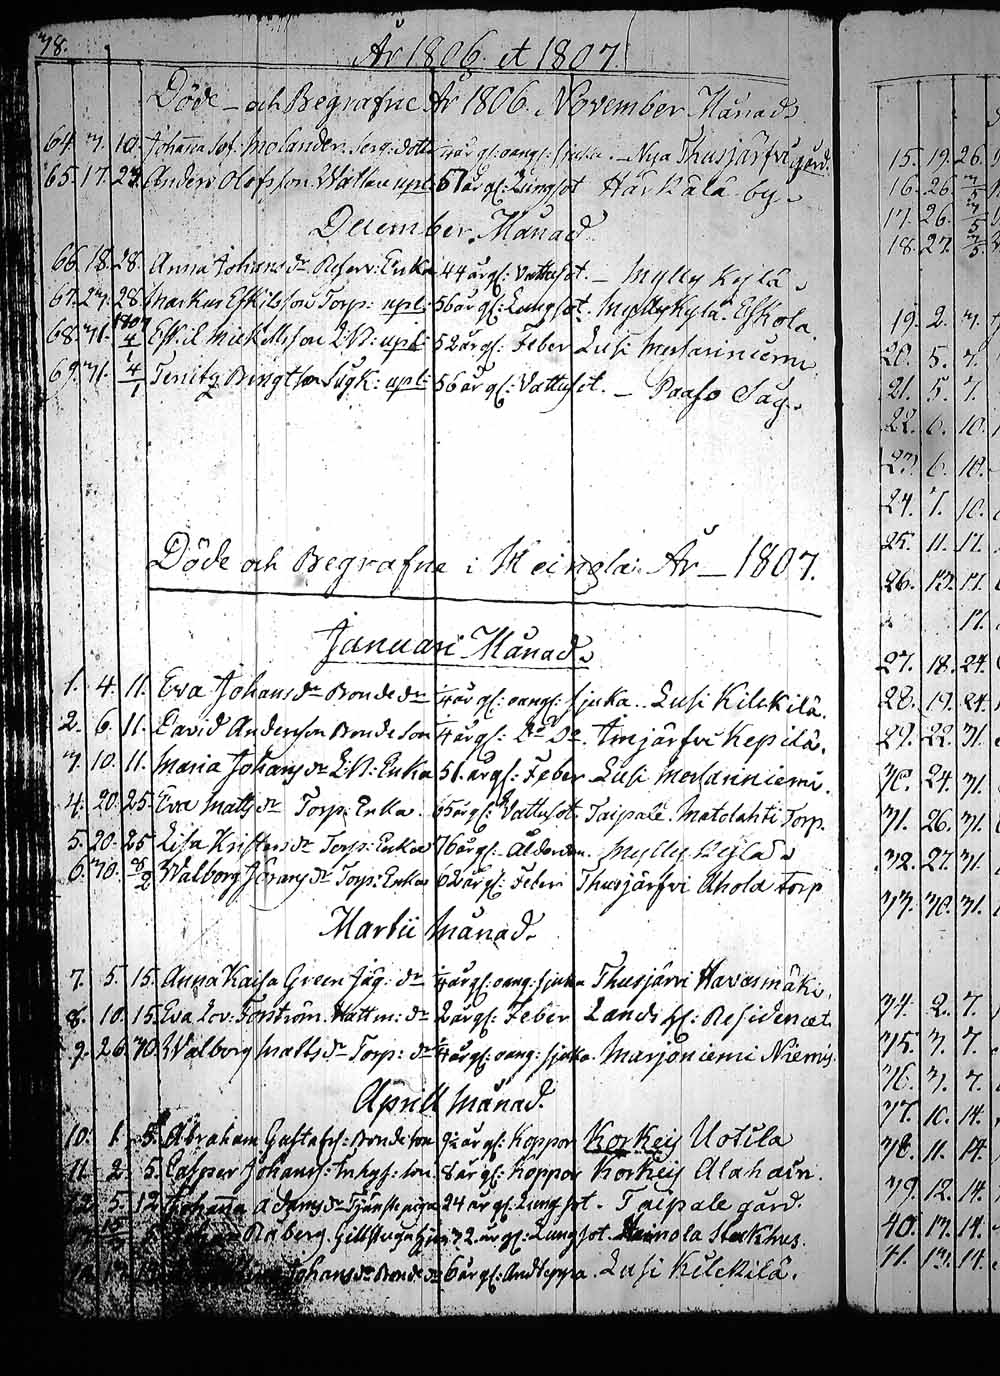 38.
År 1806 et 1807
Döde och Begrafne År 1806 November Månad
64. 3. 10. Johanna Sof. Molander Serg: dotter 1/4 år gl: oang: sjuka. Nya Thusjärfvi gård.
65. 17. 23. Anders Olofsson Wallau upl: 67 år gl: Lungsot Härkälä by
December Månad
66. 18. 28. Anna Johansdr Reserv: Enka 44 år gl: Vattusot. Mylly Kylä
67. 23. 28. Markus Eskilsson Torp: upl: 56 år gl: Lungsot. Myllykylä Eskola
68. 31. 1807 4/1 Eskil Mickillsson upl: 52 år gl: Feber Lusi Mustariniemi
69. 31. 4/1 Bengtson upl: 56 år gl: Vattusot. Paaso Såg
Döde och Begrafne i Heinola År 1807.
Januari Månad
1. 4. 11. Eva Johansdr Bonde dr 1/4 år gl: oang: sjuka. Lusi Kilkkilä.
2. 6. 11. David Anderson Bonde son 1/4 år gl: Do Do. Imjärfvi Kepilä.
3. 10. 11. Maria Johansdr Enka 51 år gl: Feber Lusi Mustariniemi.
4. 20. 25. Eva Mattsdr Torp: Enka. 65 år gl: Vattusot. Taipale. Matolahti Torp.
5. 20. 25. Lisa Kristersdr Torp: Enka 76 år gl. Ålderdom. Mylly Kylä
6. 30. 8/2 Walborg Göransdr Torp: Enka 62 år gl: Feber Thusjärfvi Ahola Torp
Martii Månad.
7. 5. 15. Anna Kaisa Green Jäg: dr 1/4 år gl: oang: sjuka Thusjärvi Havasmäki.
8. 10. 15. Eva Lov: Forström Hattm: dr 2 år gl: Feber Lands h: Residencet
9. 26. 30. Walborg Mattsdr Torp: dr 1/4 år gl: oang: sjuka. Marjoniemi Niemis
Aprill Månad.
10. 1. 5. Abraham Gustafs: Bonde son 9 1/2 år gl: Koppor Korkeis Uotila
11. 2. 5. Casper Johans: Inhys: son. 8 år gl: Koppor Korkeis Alahain.
12. 5. 12. Johanna Adamsdr Tjänste piga 24 år gl: Lungsot. Taipale gård.
Råberg. 32 år gl: Lungsot Heinola Stockhus.
Johansdr Bonde dr 6 år gl: Andtäppa. Lusi Kilkkilä.
15. 19. 26.
16. 26. 3/5
17. 26. 3/5
18. 27. 3/5
19. 2. 3.
20. 5. 7.
21. 5. 7.
22. 6. 10.
23. 6. 10.
24. 7. 10.
25. 11. 17.
26. 13. 17.
17.
27. 18. 24.
28. 19. 24.
29. 22. 31.
30. 24. 31.
31. 26. 31.
32. 27. 31.
33. 30. 31.
34. 2. 7.
35. 3. 7.
36. 3. 7.
37. 10. 14.
38. 11. 14.
39. 12. 14.
40. 13. 14.
41. 13. 14.